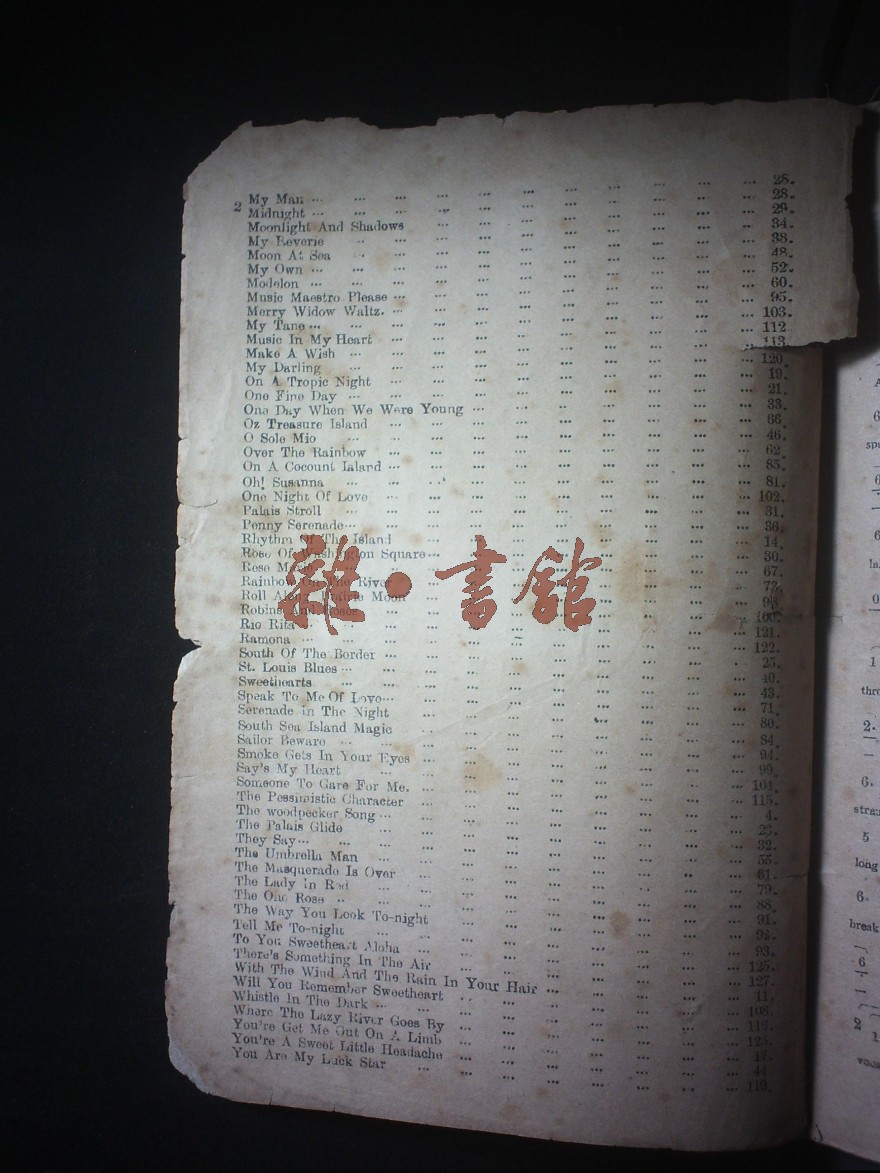 2
My Man ... 28.
Midnight ... 28.
Moonlight And Shadows ... 29.
My Reverie ... 34.
Moon At Sea ... 38.
My Own ... 48.
Modolon ... 52.
Music Maestro Please ... 60.
Merry Widow Waltz. ... 95.
My Tane ... 103.
Music In My Heart ... 112
Make A Wish ... 113.
My Darling ... 120.
On A Tropic Night ... 19.
One Fine Day ... 21.
One Day When We Were Young ... 33.
Oz Treasure Island ... 66.
O Sole Mio ... 46.
Over The Rainbow ... 62.
On A Cocount Ialand ... 85.
Oh! Susanna ... 81.
One Night Of Love ... 102.
Palais Stroll ... 31.
Penny Serenade ... 36.
Rhythm Of The Island ... 14.
Rose Of Washington Square ... 30.
Rose Marie ... 67.
Rainbow On The River ...
Roll Along Prairie Moon ...
Robins And Roses ... 100.
Rio Rita ... 121.
Ramona ... 122.
South Of The Border ... 25.
St. Louis Blues ... 40.
Sweethearts ... 43.
Speak To Me Of Love ... 71.
Serenade in The Night ... 80.
South Sea Island Magic ... 84.
Sailor Beware ... 94.
Smoke Gets In Your Eyes ... 99.
Say's My Heart ... 104.
Someone To Gare For Me. ... 115.
The Pessimistic Character ... 4.
The woodpecker Song ...
The Palais Glide ... 32.
They Say ... 55.
The Umbrella Man ... 61.
The Masquerade Is Over ... 79.
The Lady in Red ... 88.
The One Rose ... 91.
The Way You Look To-night ... 92.
Tell Me To-night ... 93.
To You Sweetheart Aloha ... 125.
There's Something In The Air ... 127.
With The Wind And The Rain In Your Hair ... 11.
Will You Remember Sweetheart ... 108.
Whistle In The Dark ...
Where The Lazy River Goes By ...
You're Get Me Out On A Limb ...
You're A Sweet Little Headache ... 44.
You Are My Luck Star ... 119.
雜·書館